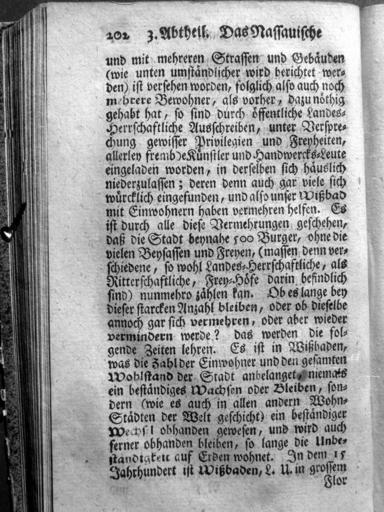 202 3. Abtheil. Das Nassauische
und mit mehreren Strassen und Gebäuden
(wie unten umständlicher wird berichtet wer-
den) ist versehen worden, folglich also auch noch
mehrere Bewohner, als vorher, dazu nöthig
gehabt hat, so sind durch öffentliche Landes-
Herrschaftliche Ausschreiben, unter Verspre-
chung gewisser Privilegien und Freyheiten,
allerley fremde Künstler und Handwercks-Leute
eingeladen worden, in derselben sich häuslich
niederzulassen; deren denn auch gar viele sich
würcklich eingefunden, und also unser Wißbad
mit Einwohnern haben vermehren helfen. Es
ist durch alle diese Vermehrungen geschehen,
daß die Stadt beynahe 500 Burger, ohne die
vielen Beysassen und Freyen, (massen denn ver-
schiedene, so wohl Landes-Herrschaftliche, als
Ritterschaftliche, Frey-Höfe darin befindlich
sind) nunmehro zählen kan. Ob es lange bey
dieser starcken Anzahl bleiben, oder ob dieselbe
annoch gar sich vermehren, oder aber wieder
vermindern werde? das werden die fol-
gende Zeiten lehren. Es ist in Wißbaden,
was die Zahl der Einwohner und den gesamten
Wohlstand der Stadt anbelanget, niemals
ein beständiges Wachsen oder Bleiben, son-
dern (wie es auch in allen andern Wohn-
Städten der Welt geschicht) ein beständiger
Wechsel obhanden gewesen, und wird auch
ferner obhanden bleiben, so lange die Unbe-
ständigkeit auf Erden wohnet. In dem 15
Jahrhundert ist Wißbaden, L. U. in grossem
Flor